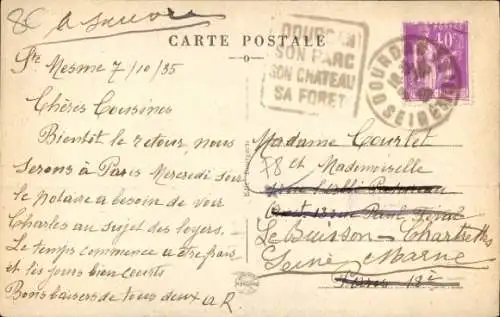 à suivre
CARTE POSTALE
DOURDAN
SON PARC
SON CHATEAU
SA FORET
40c
DOURDAN
SEINE-ET-OISE
Ste Mesme 7/10/35
Chères Cousines
Bientôt le retour, nous
serons à Paris Mercredi soir
le notaire a besoin de voir
Charles au sujet des loyers.
Le temps commence a être frais
et les jours bien courts
Bons baisers de tous deux
Madame Courtet
78 et Mademoiselle
13 rue Paul Féval
Le Buisson - Chartrettes
Seine Marne
Paris 18e